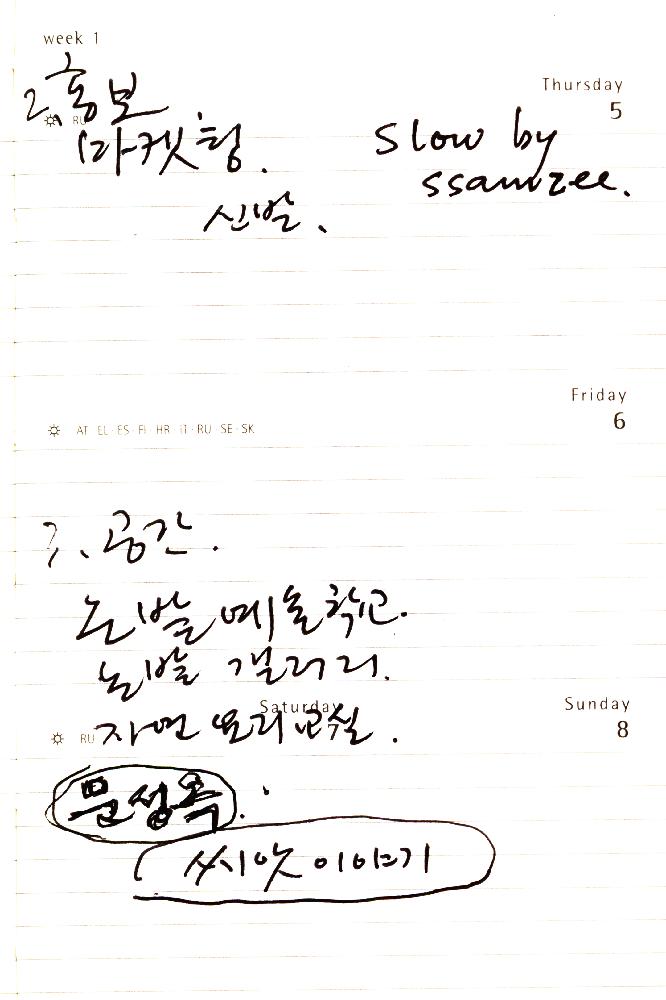 week 1
Thursday
5
2. 홍보
RU
마켓팅.
slow by
ssamzee.
신발.
Friday
6
AT · EL · ES · FI · HR · IT · RU · SE · SK
3. 공간.
논밭예술학교.
논밭 갤러리.
Saturday
Sunday
8
RU
자연 요리교실.
문성욱.
씨앗 이야기